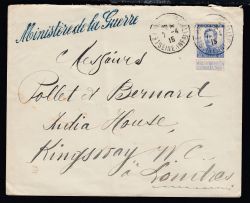 Ministère de la Guerre
Messieurs
Pollet et Bernard
India House,
Kingsway W.C.
à Londres